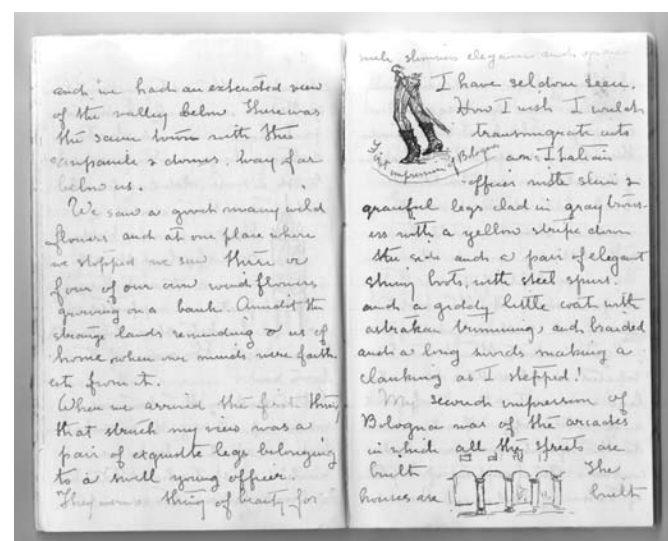 and we had an extended view
of the valley below. There was
the same town with the
campanile & domes, way far
below us.
We saw a good many wild
flowers and at one place where
we stopped we saw three or
four of our own wind flowers
growing on a bank. Amidst the
strange lands reminding us of
home when our minds were farth-
est from it.
When we arrived the first thing
that struck my view was a
pair of exquisite legs belonging
to a swell young officer.
They were a thing of beauty for
such slimness elegance and
I have seldom seen.
How I wish I could
transmigrate into
an Italian
officer with slim &
graceful legs clad in gray trous-
ers with a yellow stripe down
the side and a pair of elegant
shiny boots, with steel spurs.
and a giddy little coat with
astrakan trimming, and braided
and a long sword making a
clanking as I stepped!
My second impression of
Bologna was of the arcades
in which all the streets are
built The
houses are built
First impression of Bologna